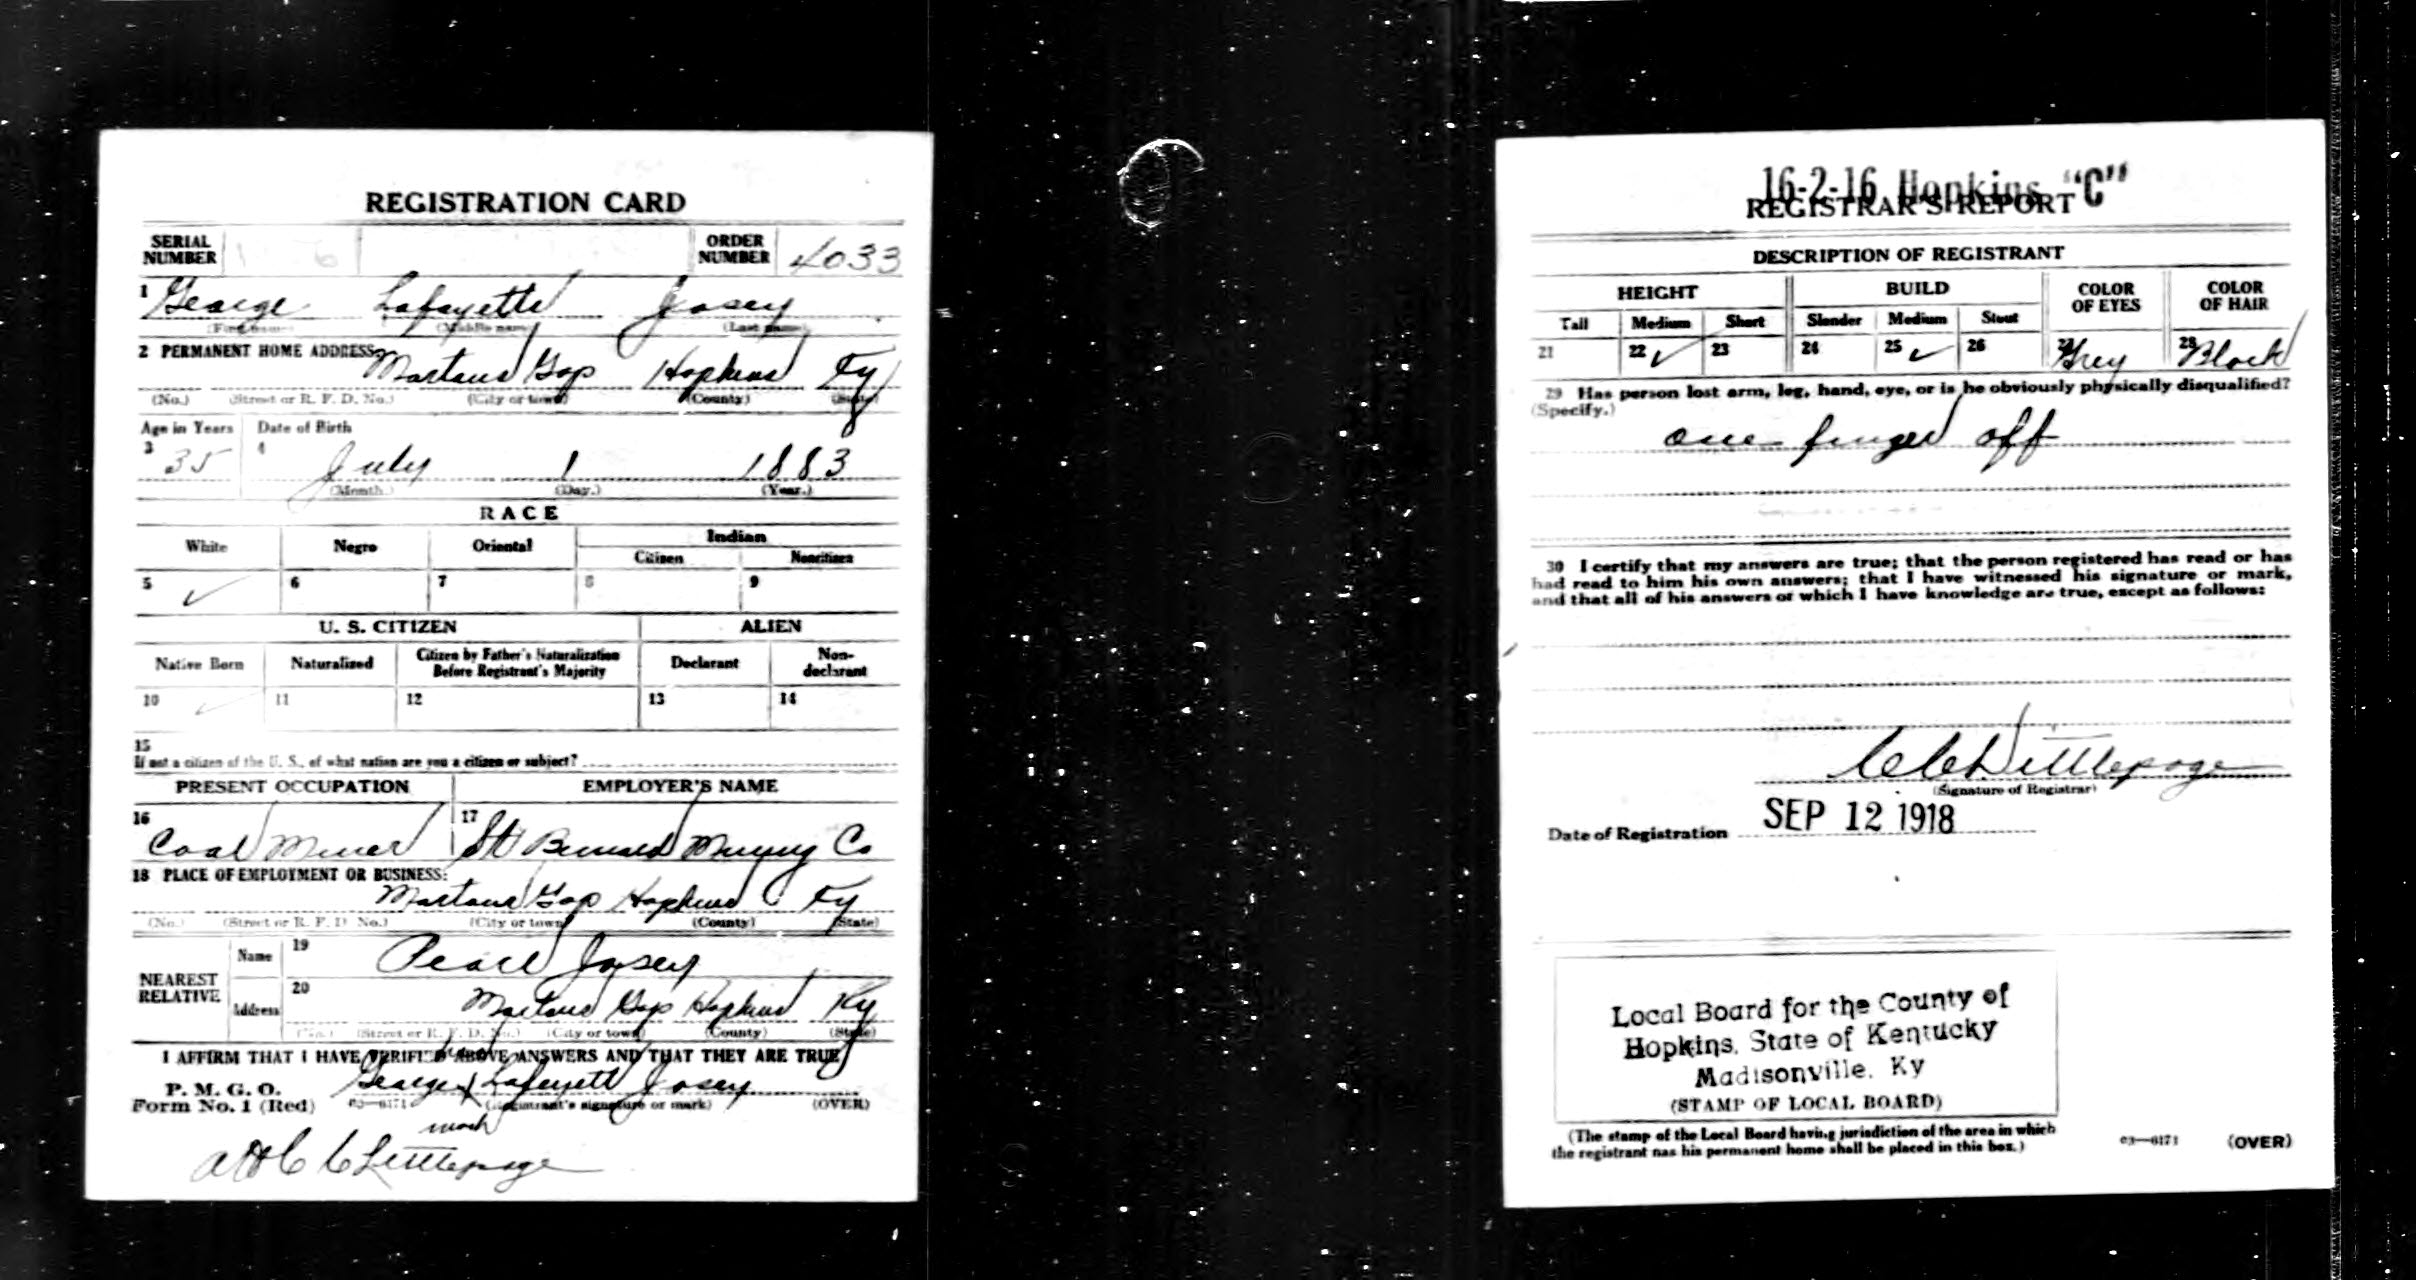 REGISTRATION CARD
SERIAL NUMBER ORDER NUMBER 4033
1 George Lafayette Josey
(First name) (Middle name) (Last name)
2 PERMANENT HOME ADDRESS:
Martons Gap Hopkins Ky
(No.) (Street or R. F. D. No.) (City or town) (County) (State)
Age in Years Date of Birth
3 35 4 July 1 1883
(Month.) (Day.) (Year.)
RACE
White Negro Oriental Indian
Citizen Noncitizen
5 ✓ 6 7 8 9
U. S. CITIZEN ALIEN
Native Born Naturalized Citizen by Father's Naturalization Before Registrant's Majority Declarant Non-declarant
10 ✓ 11 12 13 14
15
If not a citizen of the U. S., of what nation are you a citizen or subject?
PRESENT OCCUPATION EMPLOYER'S NAME
16 Coal Miner 17 St Bernard Mining Co
18 PLACE OF EMPLOYMENT OR BUSINESS:
Martons Gap Hopkins Ky
(No.) (Street or R. F. D. No.) (City or town) (County) (State)
NEAREST RELATIVE
Name 19 Pearl Josey
Address 20 Martons Gap Hopkins Ky
(No.) (Street or R. F. D. No.) (City or town) (County) (State)
I AFFIRM THAT I HAVE VERIFIED ABOVE ANSWERS AND THAT THEY ARE TRUE
his
P. M. G. O. George x Lafayette Josey
Form No. 1 (Red) 03—6171 (Registrant's signature or mark) (OVER)
mark
att C C Littlepage
16-2-16 Hopkins "C"
REGISTRAR'S REPORT
DESCRIPTION OF REGISTRANT
HEIGHT BUILD COLOR OF EYES COLOR OF HAIR
Tall Medium Short Slender Medium Stout
21 22 ✓ 23 24 25 ✓ 26 27 Grey 28 Black
29 Has person lost arm, leg, hand, eye, or is he obviously physically disqualified?
(Specify.)
one finger off
30 I certify that my answers are true; that the person registered has read or has
had read to him his own answers; that I have witnessed his signature or mark,
and that all of his answers of which I have knowledge are true, except as follows:
C C Littlepage
(Signature of Registrar)
Date of Registration SEP 12 1918
Local Board for the County of
Hopkins, State of Kentucky
Madisonville, Ky
(STAMP OF LOCAL BOARD)
(The stamp of the Local Board having jurisdiction of the area in which
the registrant has his permanent home shall be placed in this box.)
03—6171 (OVER)